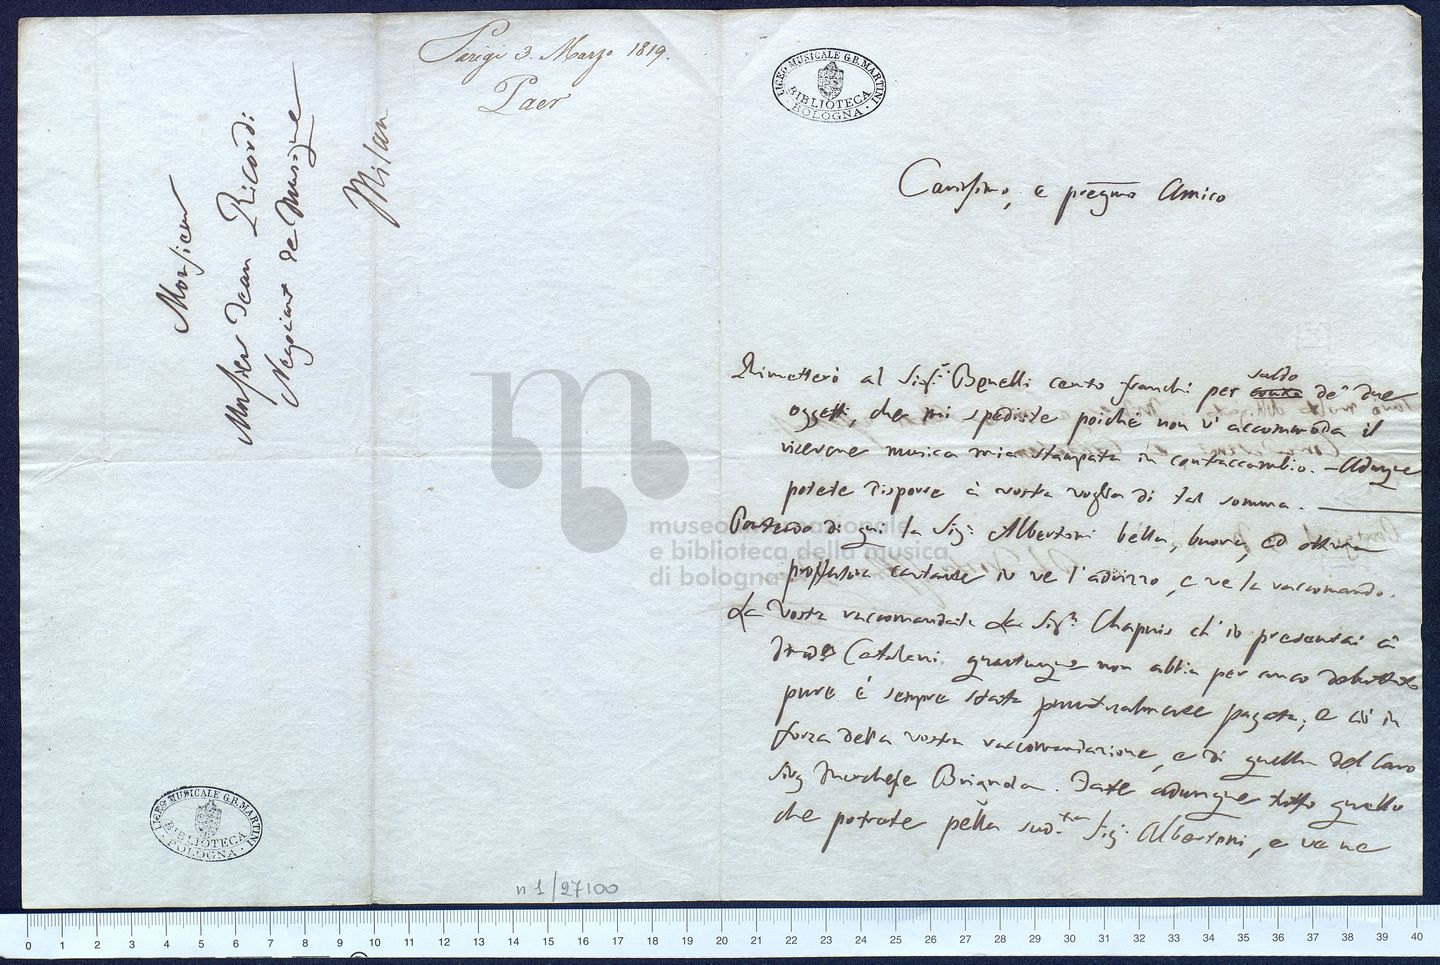 Parigi 3. Marzo 1819.
Paer
Monsieur
Monsieur Jean Ricordi
Negociant de Musique
Milan
LICEO MUSICALE G.B. MARTINI
BIBLIOTECA
BOLOGNA
Carissimo, e pregmo Amico
Rimetterò al Sigr. Benelli cento franchi per saldo conto de' due
oggetti, che mi spediste poichè non v'accommoda il
ricevere musica mia stampata in contraccambio. – Adunque
potete disporre à vostra voglia di tal somma.
Partendo di qui la Sig: Albertoni bella, buona, ed ottima
cantante io ve l'advizzo, e ve la raccomando.
La vostra raccomandata La Sigra. Chapuis ch'io presentai à
Catalani quantunque non abbia per anco debuttato
pure è sempre stata puntualmente pagata, e ciò in
forza della vostra raccomandazione, e di quella del Caro
Sig Marchese Brignola. Fate adunque tutto quello
che potrete pella sud.ta Sig: Albertoni, e ve ne
museo internazionale
e biblioteca della musica
di bologna
LICEO MUSICALE G.B. MARTINI
BIBLIOTECA
BOLOGNA
n 1/27100
0 1 2 3 4 5 6 7 8 9 10 11 12 13 14 15 16 17 18 19 20 21 22 23 24 25 26 27 28 29 30 31 32 33 34 35 36 37 38 39 40